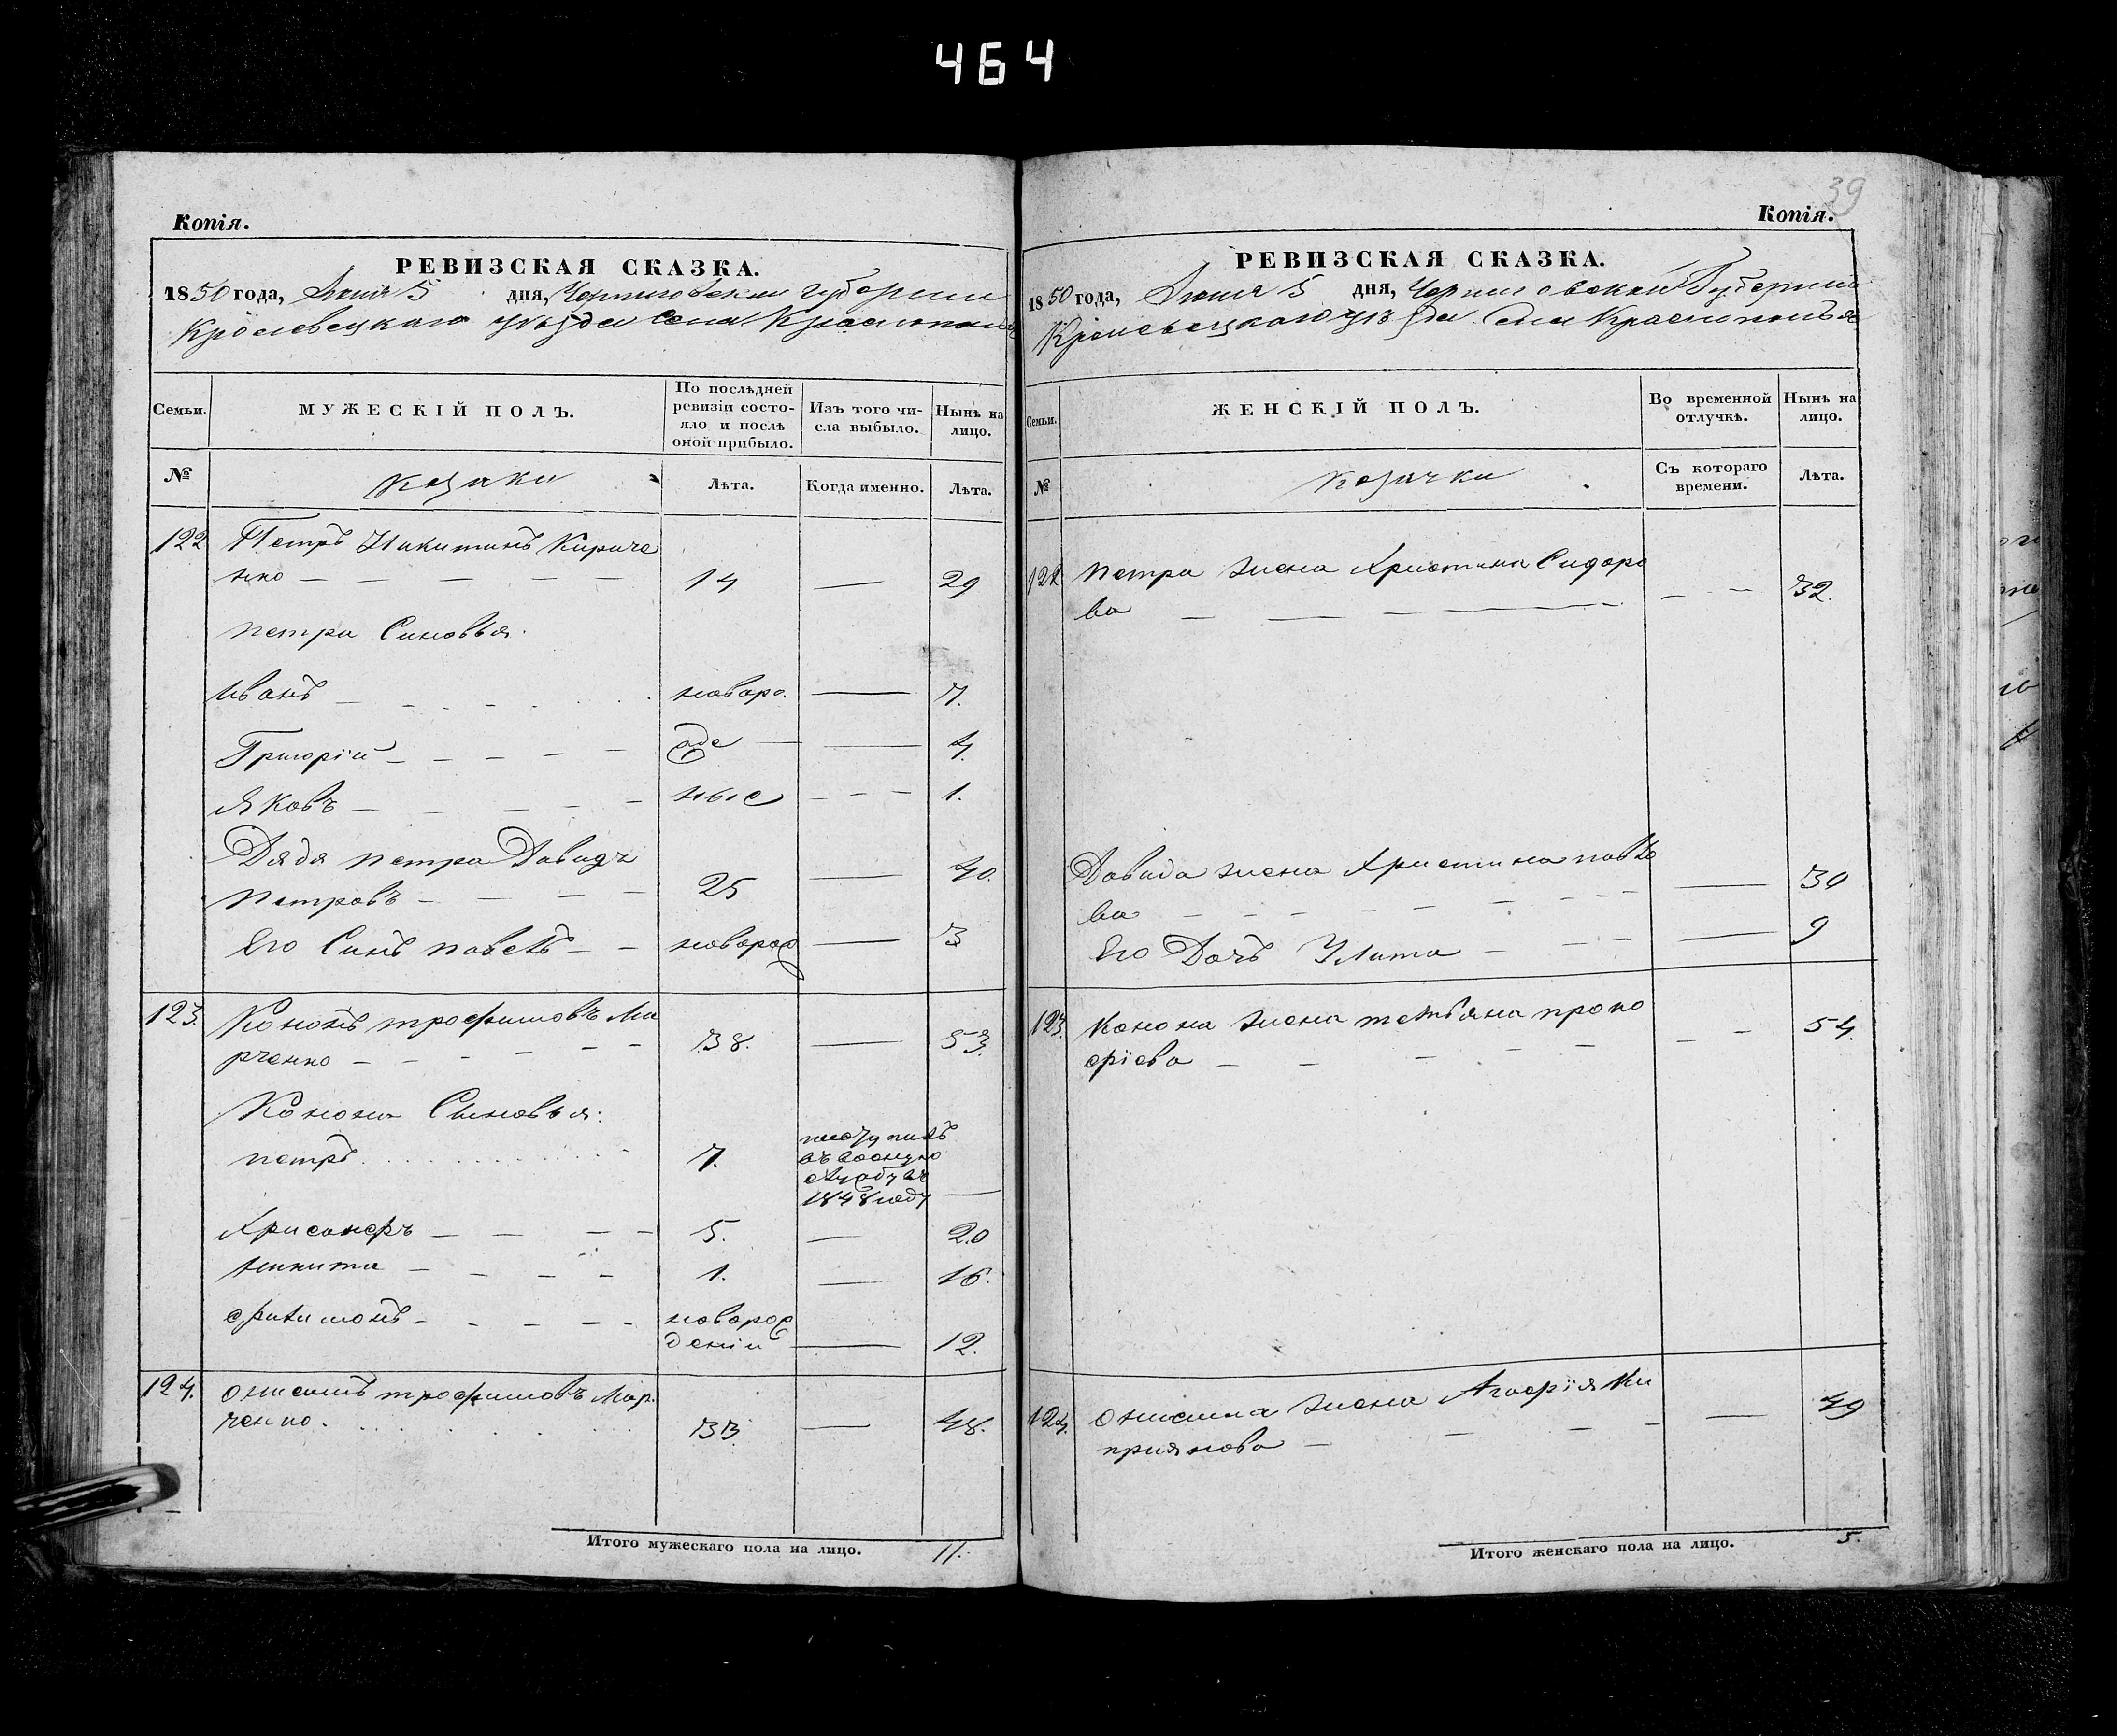 464
Копія.
РЕВИЗСКАЯ СКАЗКА.
1850 года, Июня 5 дня, Черниговской губернии
Кролевецкаго уѣзда Села Краснополья
Семьи.
МУЖЕСКІЙ ПОЛЪ.
По послѣдней
ревизіи состо-
яло и послѣ
оной прибыло.
Изъ того чи-
сла выбыло.
Нынѣ на
лицо.
№
козаки
Лѣта.
Когда именно.
Лѣта.
122 Петръ Никитинъ Кириче
нко 14 29
петра Синовья.
Иванъ новоро. 7.
Григорій жде 4.
Яковъ ные 1.
Дядя петра Давидъ
петровъ 25 40.
Его Синъ павелъ новорож 3
123. Кононъ трофимовъ Ма
рченко 38. 53.
Конона Сыновья:
петръ 7. поступилъ
въ военную
службу въ
1848 году
Хрисанфъ 5. 20
никита 1. 16.
филимонъ новорож
деній 12.
124. онисимъ трофимовъ Мар
ченко. 33. 48.
Итого мужескаго пола на лицо. 11.
39
Копія.
РЕВИЗСКАЯ СКАЗКА.
1850 года, Июня 5 дня, Черниговской Губерніи
Кролевецкаго уѣзда Села Краснополья
Семьи.
ЖЕНСКІЙ ПОЛЪ.
Во временной
отлучкѣ.
Нынѣ на
лицо.
№
козачки
Съ котораго
времени.
Лѣта.
122 петра жена Христина Сидоро
ва 32.
Давида жена Христина павло
ва 30
Его Дочъ Улита 9
123. Конона жена тетьяна проко
фіева 54.
124. онисима жена Агафія Ки
приянова 49
Итого женскаго пола на лицо. 5.